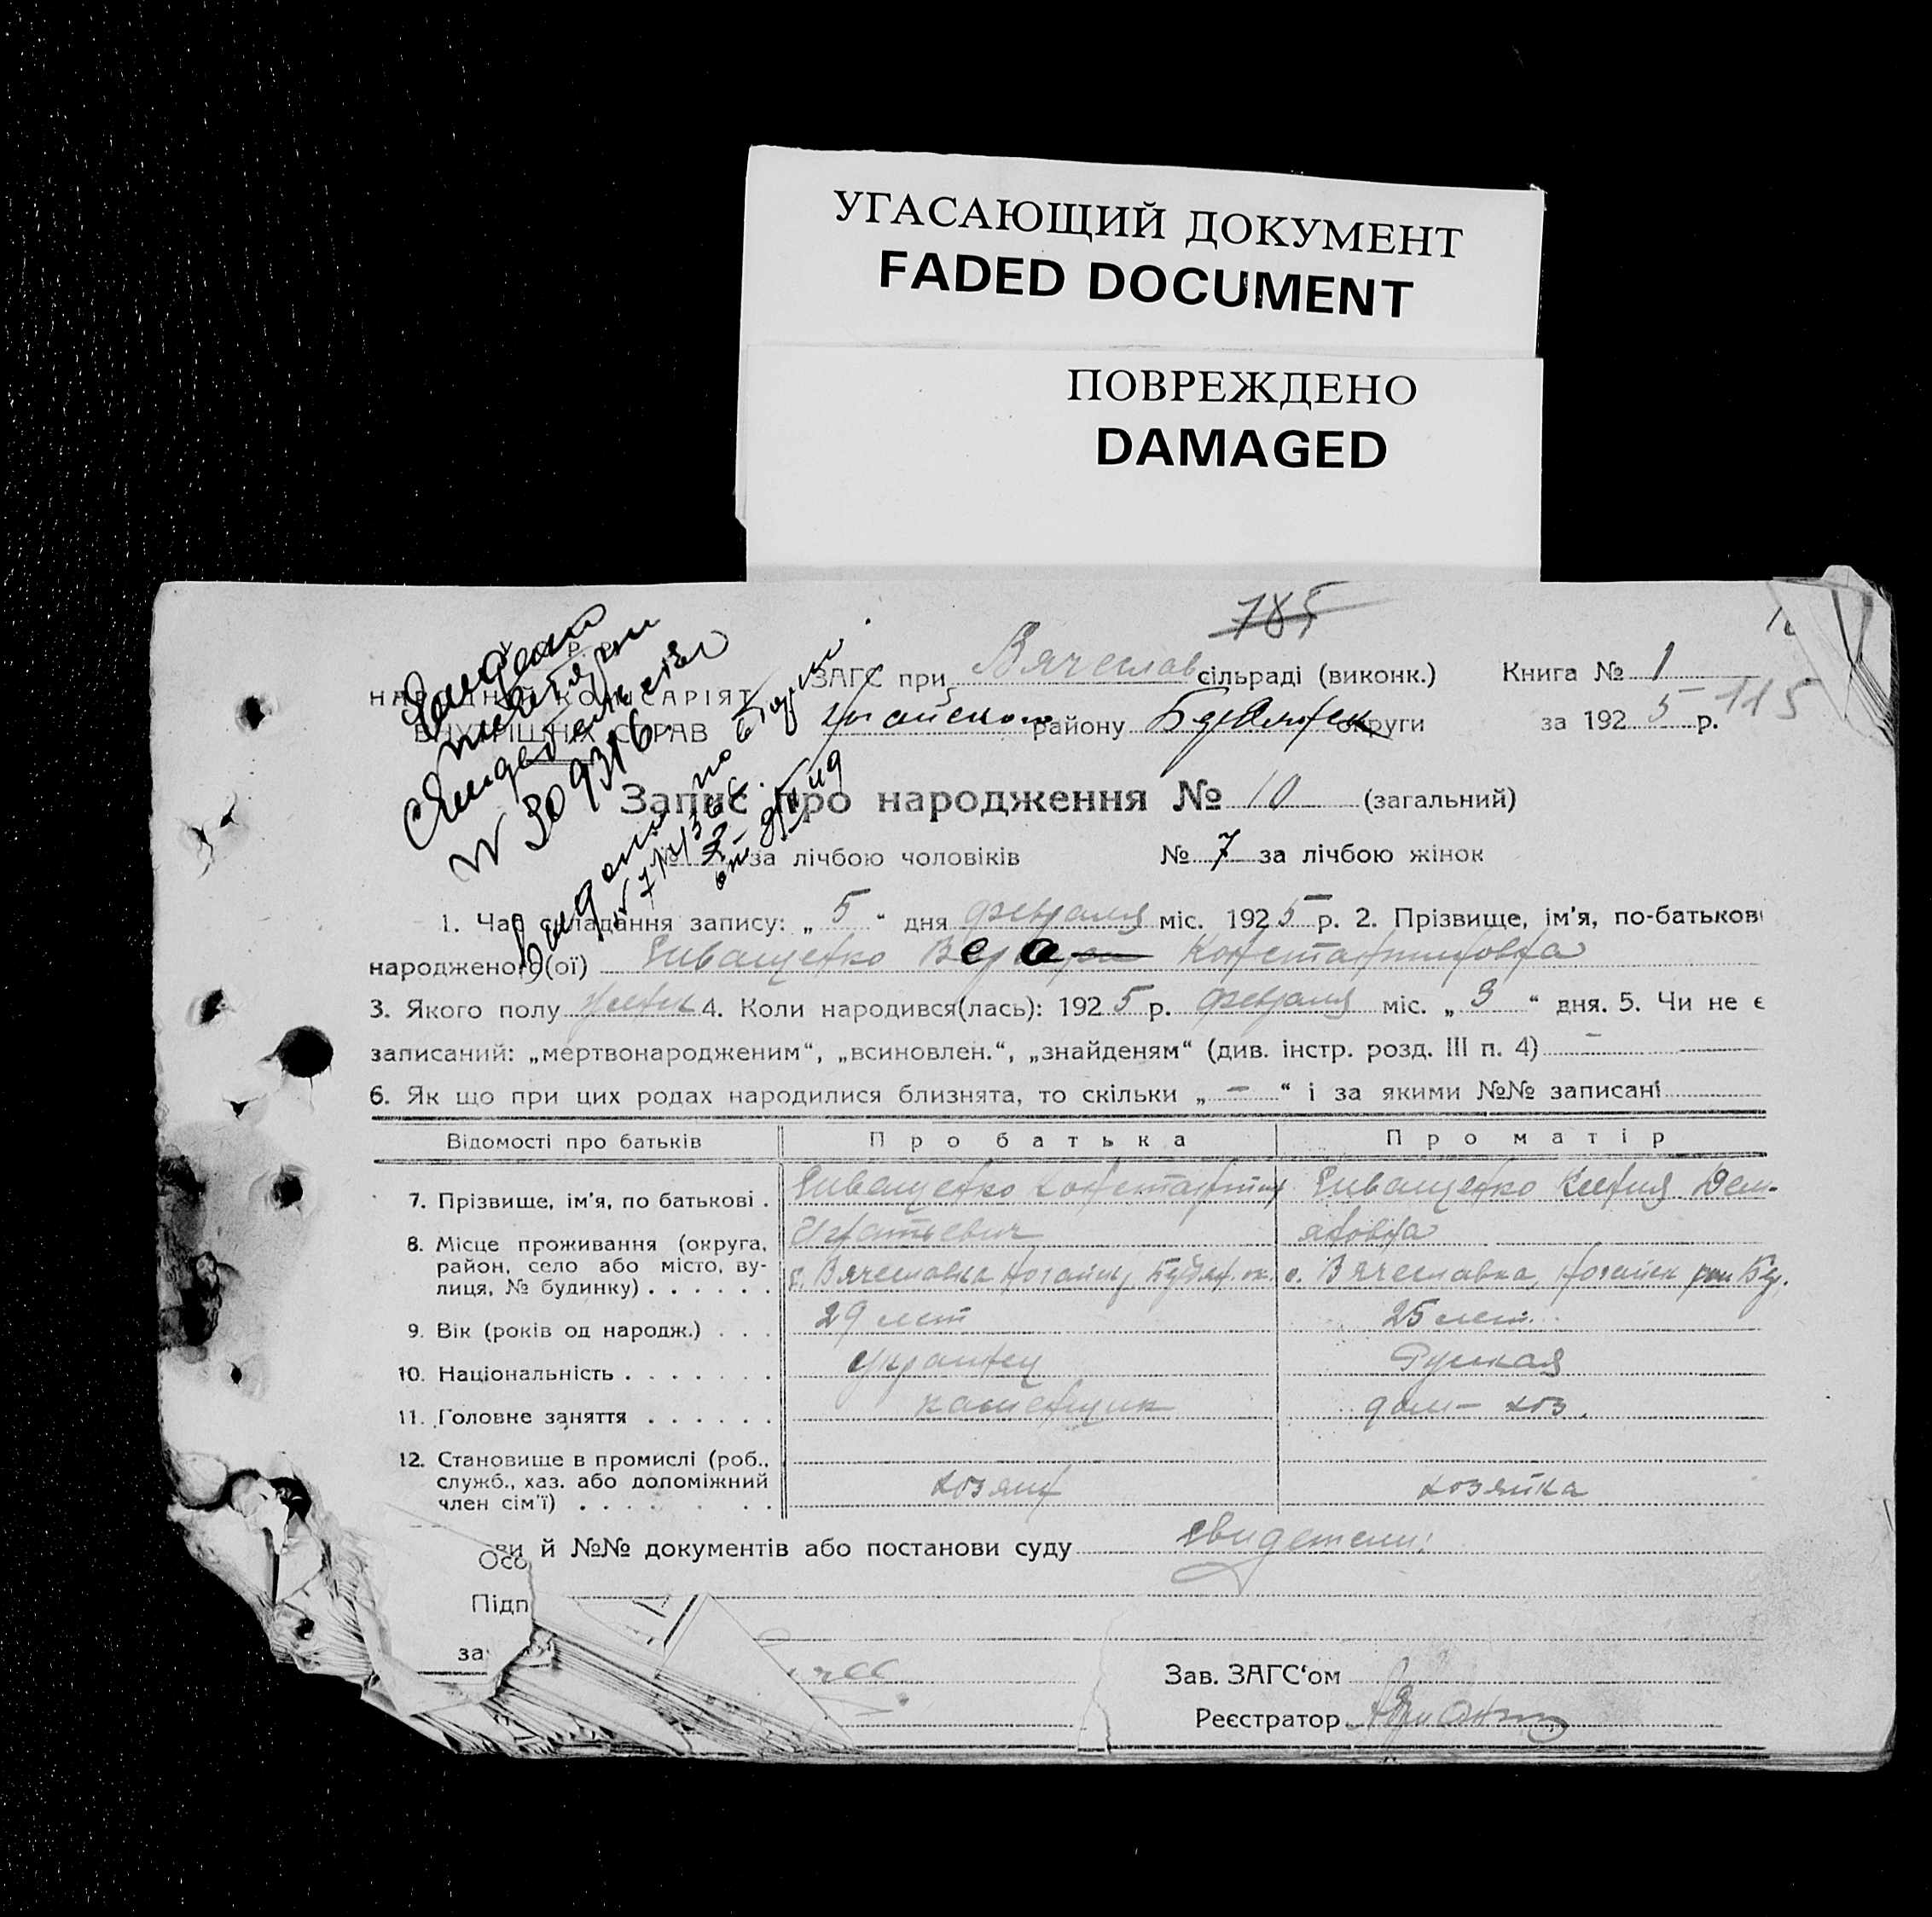 УГАСАЮЩИЙ ДОКУМЕНТ
FADED DOCUMENT
ПОВРЕЖДЕНО
DAMAGED
785
Р.
НАРОДНИЙ КОМІСАРІЯТ
ВНУТРІШНІХ СПРАВ
ЗАГС при Вячеслав сільраді (виконк.) Книга № 1
району округи за 192 5 р. 115
№ 309316
Запис про народження № 10 (загальний)
№ за лічбою чоловіків № 7 за лічбою жінок
1. Час складання запису: „ 5 “ дня февраля міс. 192 5 р. 2. Прізвище, ім'я, по-батькові
народженого(ої) Иващенко Вера Константиновна
3. Якого полу женск 4. Коли народився(лась): 192 5 р. февраля міс. „ 3 “ дня. 5. Чи не є
записаний: „мертвонародженим“, „всиновлен.“, „знайденям“ (див. інстр. розд. III п. 4) —
6. Як що при цих родах народилися близнята, то скільки „ — “ і за якими №№ записані
Відомості про батьків Про батька Про матір
7. Прізвище, ім'я, по батькові . Иващенко Константин Иващенко Ксения Дем-
Игнатьевич яновна
8. Місце проживання (округа, район, село або місто, ву-
лиця, № будинку) . . . . . . с. Вячеславка Ногайск, Бердян. ок. с. Вячеславка, Ногайск рай Бер.
9. Вік (років од народж.) . . . 29 лет 25 лет
10. Національність . . . . . . . Украинец Русская
11. Головне заняття . . . . . . каменщик дом-хоз.
12. Становище в промислі (роб.,
служб., хаз. або допоміжний
член сім'ї) . . . . . . . . хозяин хозяйка
ви й №№ документів або постанови суду свидетели:
Осо
Підп
за
Зав. ЗАГС‘ом
Реєстратор